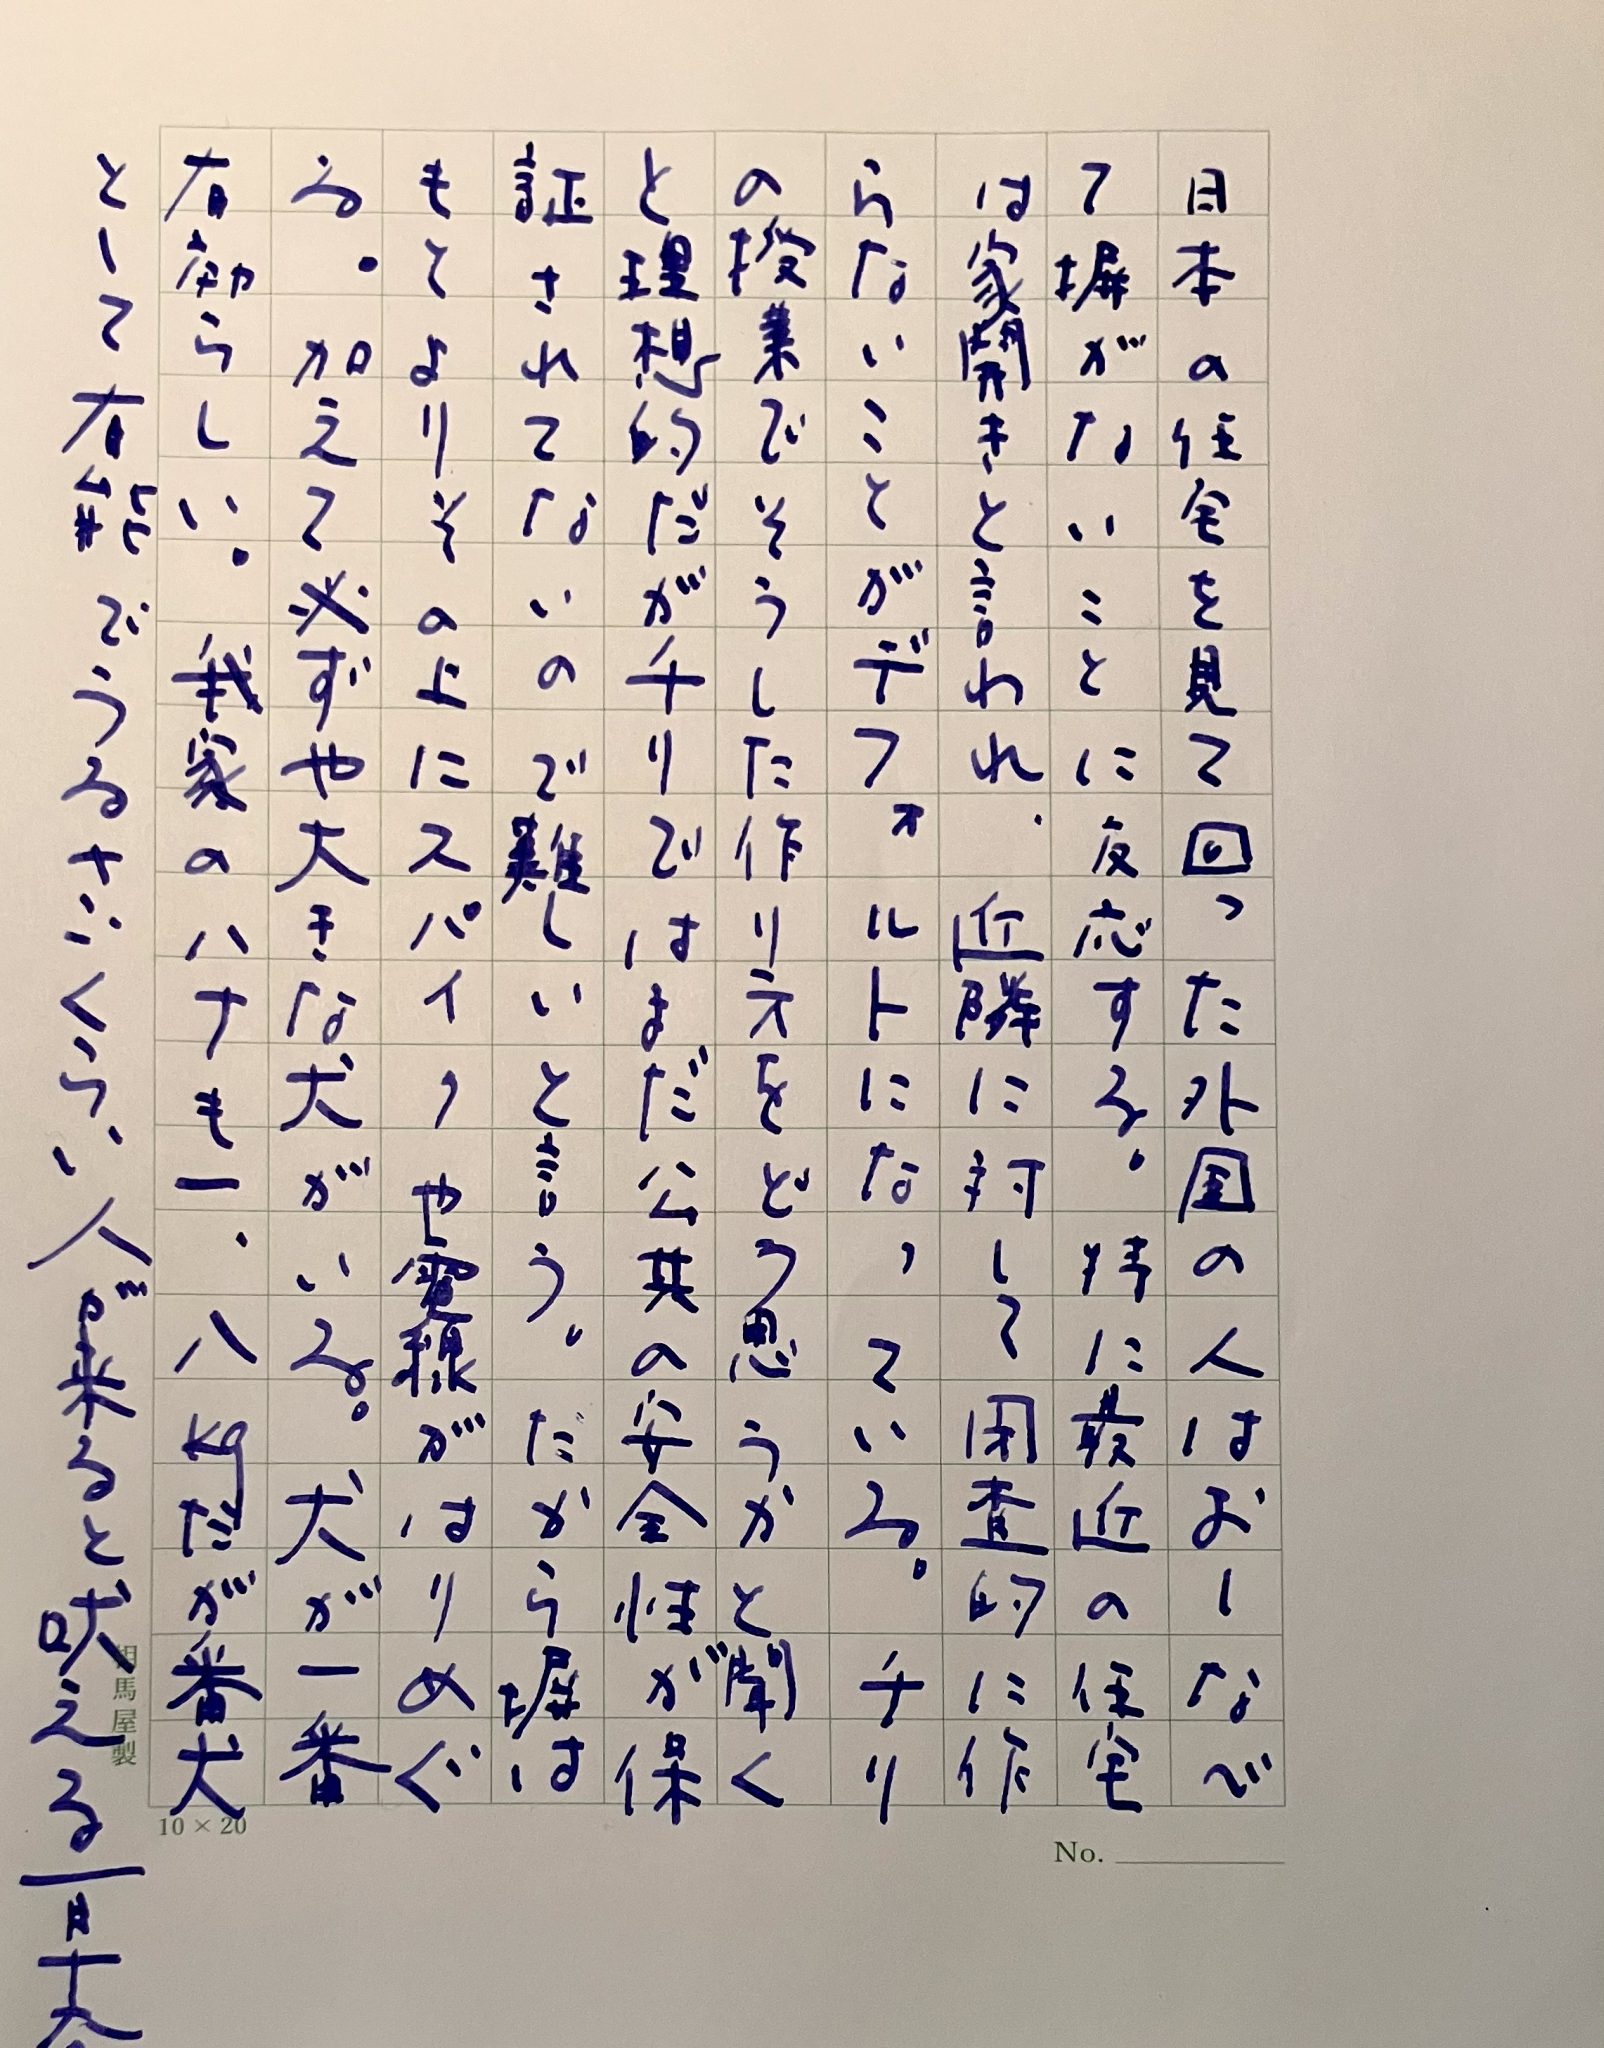 日本の住宅を見て回った外国の人はおしなべ
て塀がないことに反応する。特に最近の住宅
は家開きと言われ、近隣に対して閉査的に作
らないことがデフォルトになっている。チリ
の授業でそうした作り方をどう思うかと聞く
と理想的だがチリではまだ公共の安全性が保
証されてないので難しいと言う。だから塀は
もとよりその上にスパイクや電線がはりめぐ
る。加えて必ずや大きな犬がいる。犬が一番
有効らしい。我家のハナも一、八kgだが番犬
として有能でうるさいくらい人が来ると吠える 一月十六
相馬屋製
10×20
No.